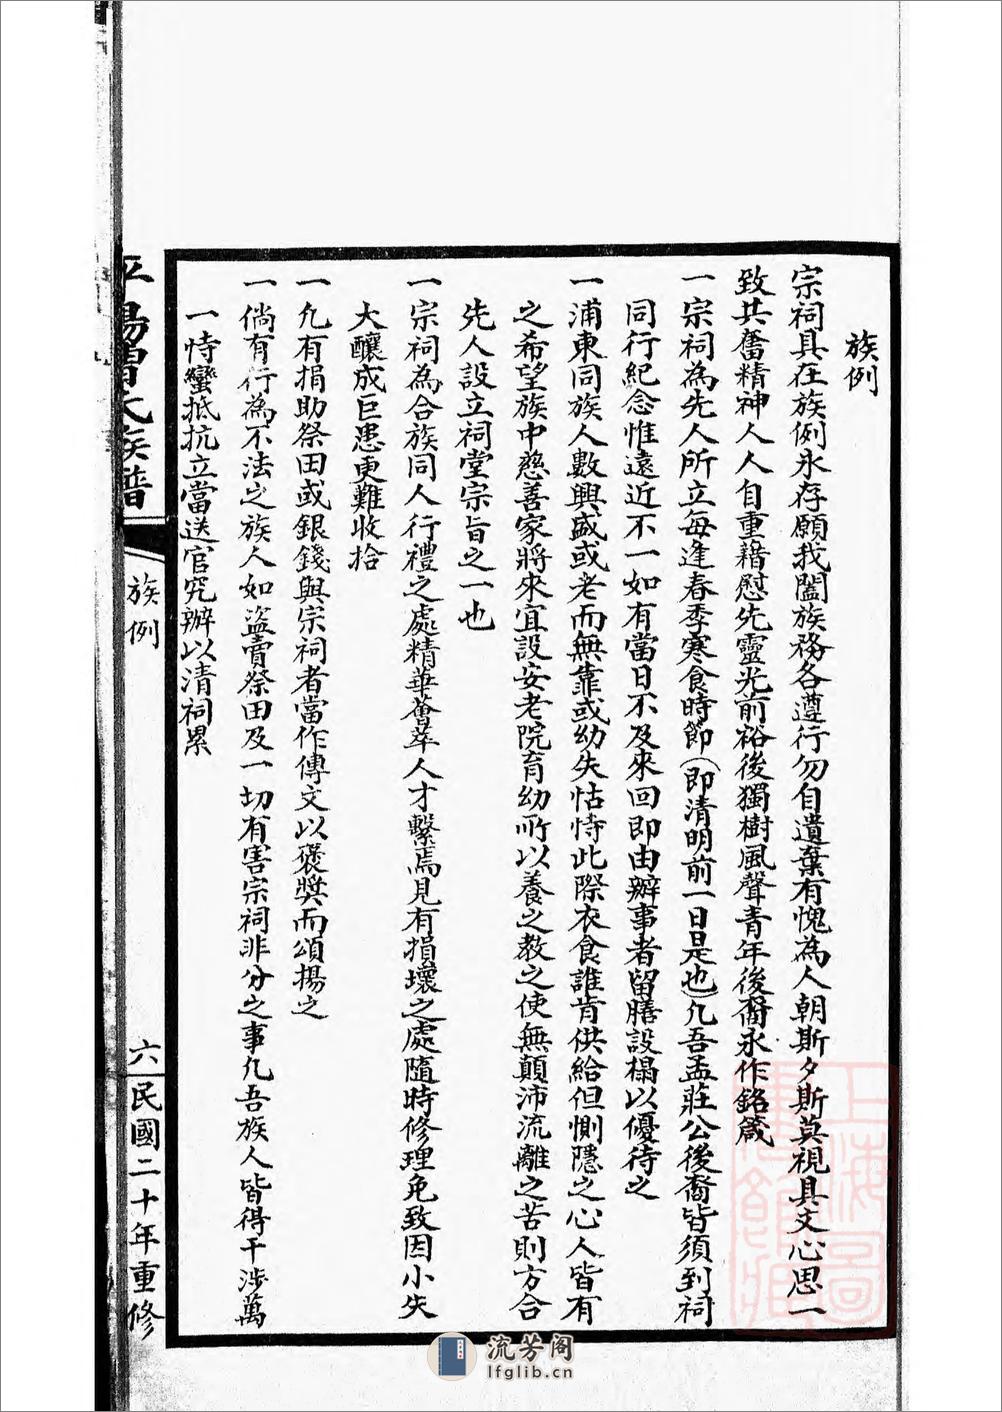 族例
宗祠具在族例永存願我闔族務各遵行勿自遺棄有愧為人朝斯夕斯莫視具文心思一
致共奮精神人人自重藉慰先靈光前裕後獨樹風聲青年後裔永作銘箴
一宗祠為先人所立每逢春季寒食時節(即清明前一日是也)凡吾孟莊公後裔皆須到祠
同行紀念惟遠近不一如有當日不及來回即由辦事者留膳設榻以優待之
一浦東同族人數興盛或老而無靠或幼失怙恃此際衣食誰肯供給但惻隱之心人皆有
之希望族中慈善家將來宜設安老院育幼所以養之教之使無顛沛流離之苦則方合
先人設立祠堂宗旨之一也
一宗祠為合族同人行禮之處精華薈萃人才繫焉見有損壞之處隨時修理免致因小失
大釀成巨患更難收拾
一凡有捐助祭田或銀錢與宗祠者當作傳文以褒獎而頌揚之
一倘有行為不法之族人如盜賣祭田及一切有害宗祠非分之事凡吾族人皆得干涉萬
一恃蠻抵抗立當送官究辦以清祠累
平陽曾氏族譜
族例
六
民國二十年重修
上海圖書館藏
流芳阁
lfglib.cn